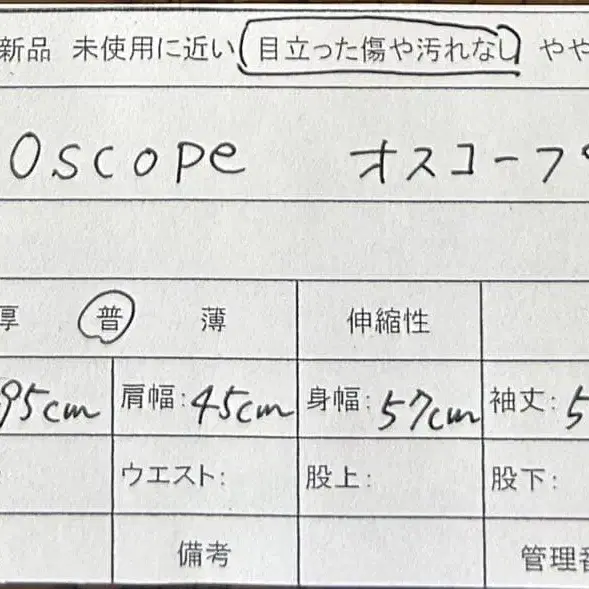 新品 未使用に近い 目立った傷や汚れなし やや
oscope オスコープ
厚 普 薄 伸縮性
95cm 肩幅:45cm 身幅:57cm 袖丈:5
ウエスト: 股上: 股下:
備考 管理番